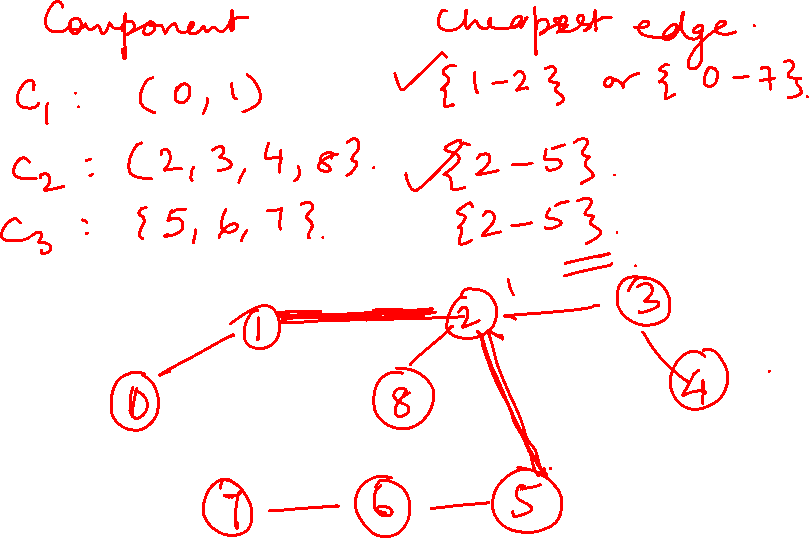 Component cheapest edge.
C1 : (0,1) ✓{1-2} or {0-7}.
C2 : (2,3,4,8}. ✓{2-5}.
C3 : {5,6,7}. {2-5}.
1 2 3
0 8 4
7 6 5